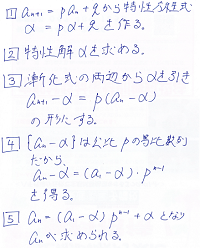 1 aₙ₊₁ = paₙ+q から特性方程式
α = pα+q を作る。
2 特性解 α を求める。
3 漸化式の両辺から α を引き
aₙ₊₁-α = p(aₙ-α)
の形にする。
4 {aₙ-α} は公比 p の等比数列
だから、
aₙ-α = (a₁-α)・pⁿ⁻¹
を得る。
5 aₙ = (a₁-α) pⁿ⁻¹+α となり
aₙ が求められる。